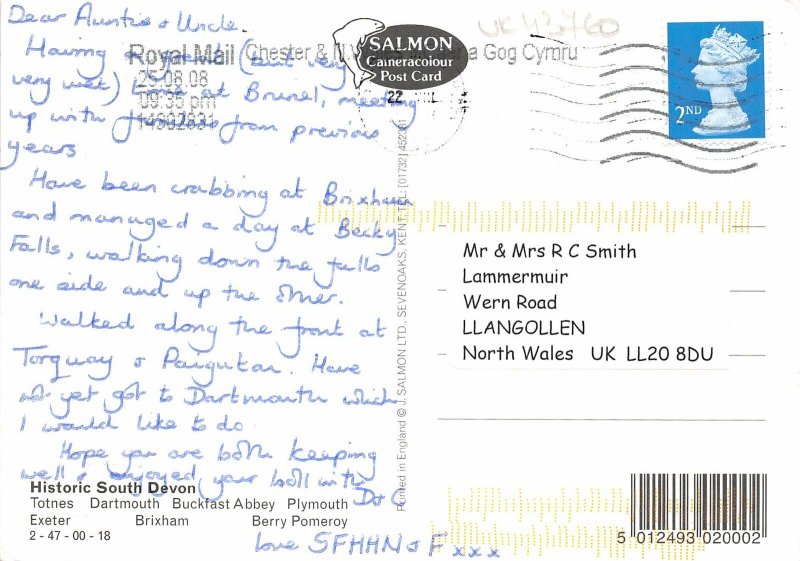 Dear Auntie & Uncle
Having (but very
very wet) time at Brunel, meeting
up with from previous
years.
Have been crabbing at Brixham
and managed a day at Becky
Falls, walking down the falls
one side and up the other.
Walked along the front at
Torquay & Paignton. Have
not yet got to Dartmouth which
I would like to do.
Hope you are both keeping
well & enjoyed your hol with
D & C
love SFHHN & F xxx
UK43760
Royal Mail Chester & Gog Cymru
25.08.08
09:35 pm
14392831
22
SALMON
Cameracolour
Post Card
2ND
Mr & Mrs R C Smith
Lammermuir
Wern Road
LLANGOLLEN
North Wales UK LL20 8DU
Printed in England © J. SALMON LTD., SEVENOAKS, KENT. TEL: [01732] 452381
Historic South Devon
Totnes Dartmouth Buckfast Abbey Plymouth
Exeter Brixham Berry Pomeroy
2 - 47 - 00 - 18
5 012493 020002